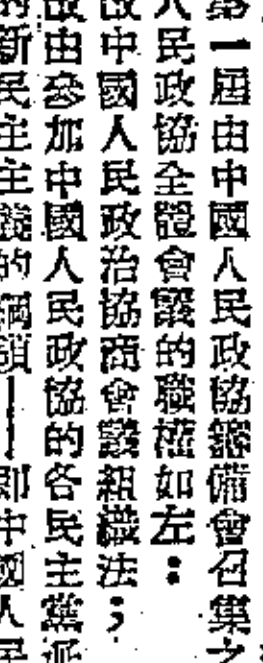 第一屆由中國人民政協籌備會召集之
人民政協全體會議的職權如左：
改中國人民政治協商會議組織法；
改由參加中國人民政協的各民主黨派
的新民主主義的綱領——即中國人民